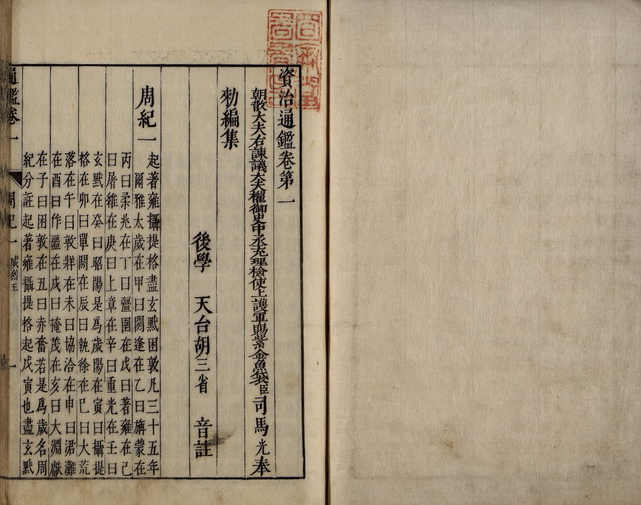 資治通鑑卷第一
朝散大夫右諫議大夫權御史中丞充理檢使上護軍賜紫金魚袋臣司馬光奉
勑編集
後學 天台胡三省 音註
周紀一
起著雍攝提格盡玄黓困敦凡三十五年
爾雅太歲在甲曰閼逢在乙曰旃蒙在
丙曰柔兆在丁曰彊圉在戊曰著雍在己
曰屠維在庚曰上章在辛曰重光在壬曰
玄黓在癸曰昭陽是爲歲陽在寅曰攝提
格在卯曰單閼在辰曰執徐在巳曰大荒
落在午曰敦牂在未曰協洽在申曰涒灘
在酉曰作噩在戌曰掩茂在亥曰大淵獻
在子曰困敦在丑曰赤奮若是爲歲名周
紀分註起著雍攝提格起戊寅也盡玄黓
通鑑卷一
周紀一
威烈王
一